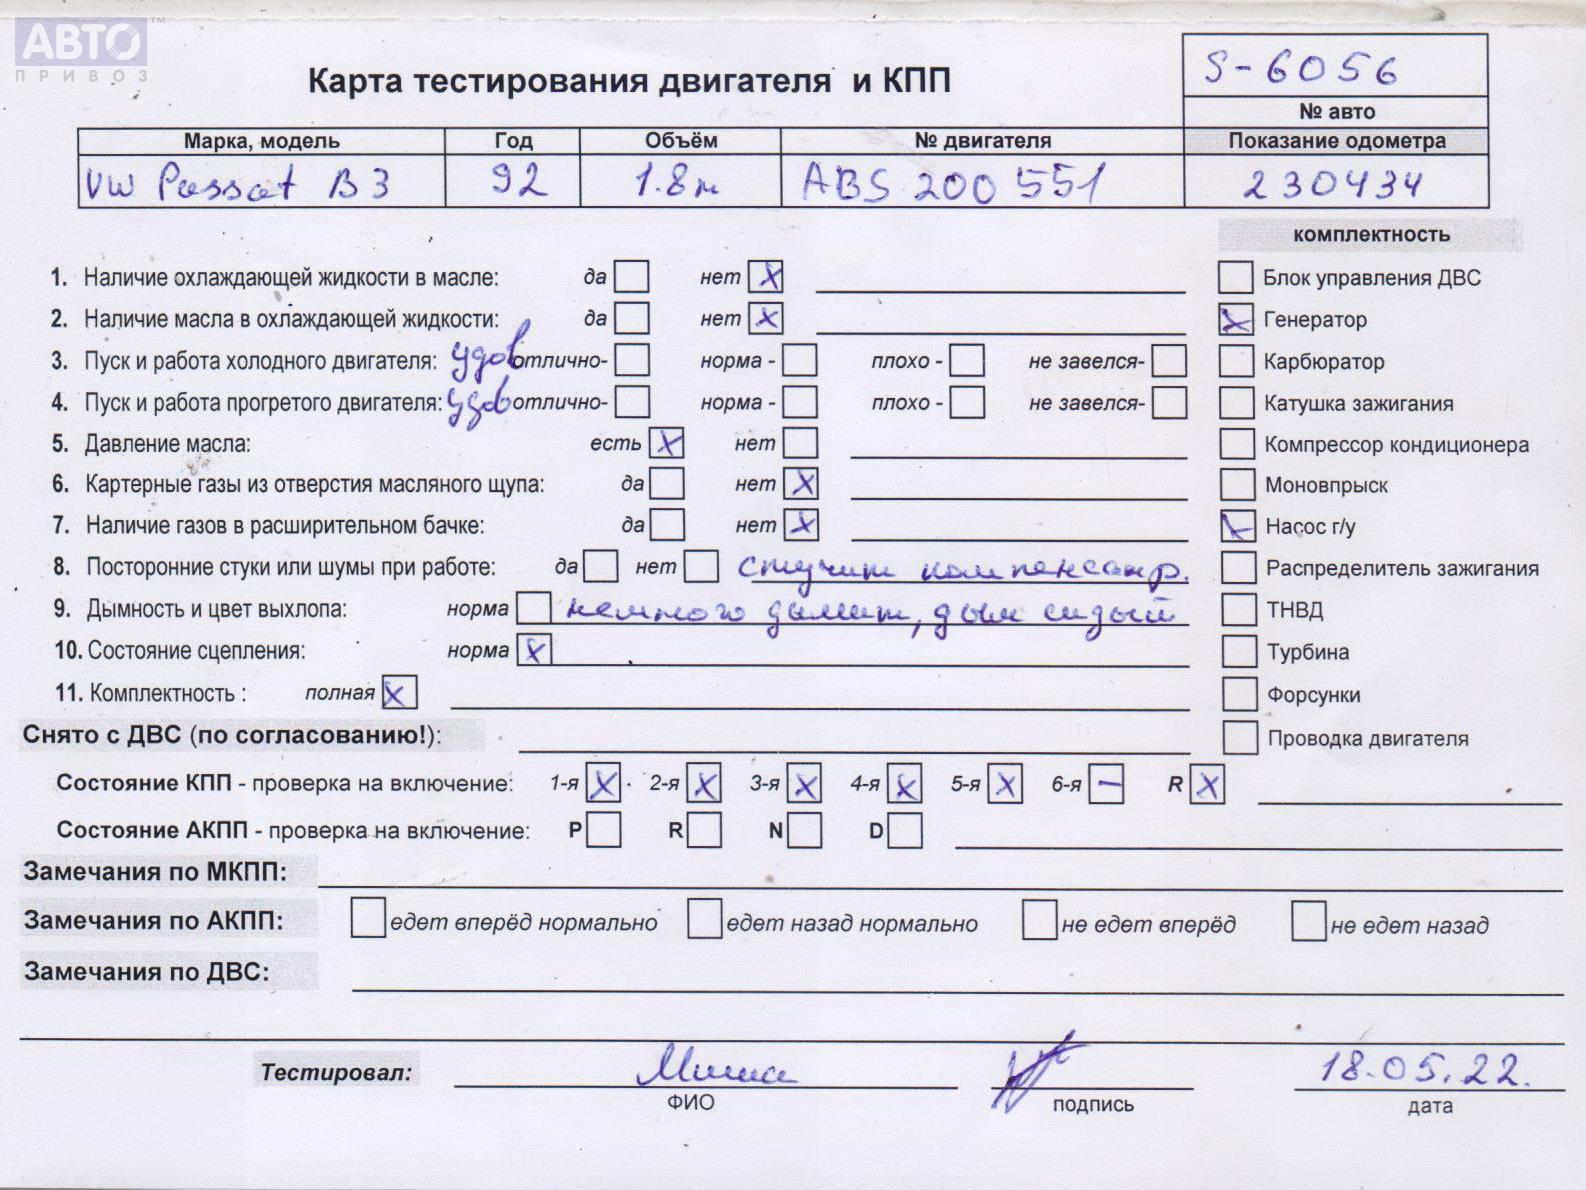 АВТО™
ПРИВОЗ
S-6056
Карта тестирования двигателя и КПП
№ авто
Марка, модель Год Объём № двигателя Показание одометра
VW Passat B3 92 1.8м ABS 200 551 230434
комплектность
1. Наличие охлаждающей жидкости в масле: да нет X Блок управления ДВС
2. Наличие масла в охлаждающей жидкости: да нет X X Генератор
3. Пуск и работа холодного двигателя: удов отлично- норма - плохо - не завелся- Карбюратор
4. Пуск и работа прогретого двигателя: удов отлично- норма - плохо - не завелся- Катушка зажигания
5. Давление масла: есть X нет Компрессор кондиционера
6. Картерные газы из отверстия масляного щупа: да нет X Моновпрыск
7. Наличие газов в расширительном бачке: да нет X X Насос г/у
8. Посторонние стуки или шумы при работе: да нет стучит компенсатр. Распределитель зажигания
9. Дымность и цвет выхлопа: норма немного дымит, дым сидый ТНВД
10. Состояние сцепления: норма X Турбина
11. Комплектность : полная X Форсунки
Снято с ДВС (по согласованию!): Проводка двигателя
Состояние КПП - проверка на включение: 1-я X 2-я X 3-я X 4-я X 5-я X 6-я — R X
Состояние АКПП - проверка на включение: P R N D
Замечания по МКПП:
Замечания по АКПП: едет вперёд нормально едет назад нормально не едет вперёд не едет назад
Замечания по ДВС:
Тестировал: Миша 18.05.22.
ФИО подпись дата